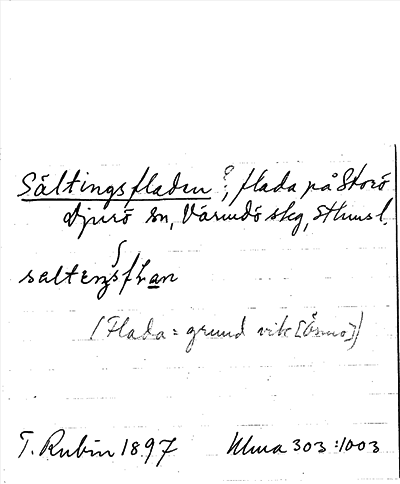 Sältingsfladen?, flada på Storö
Djurö sn, Värmdö skg, Sthms l.
saltensfɫan
(Flada = grund vik [Ornö])
T. Rubin 1897 Ulma 303:1003